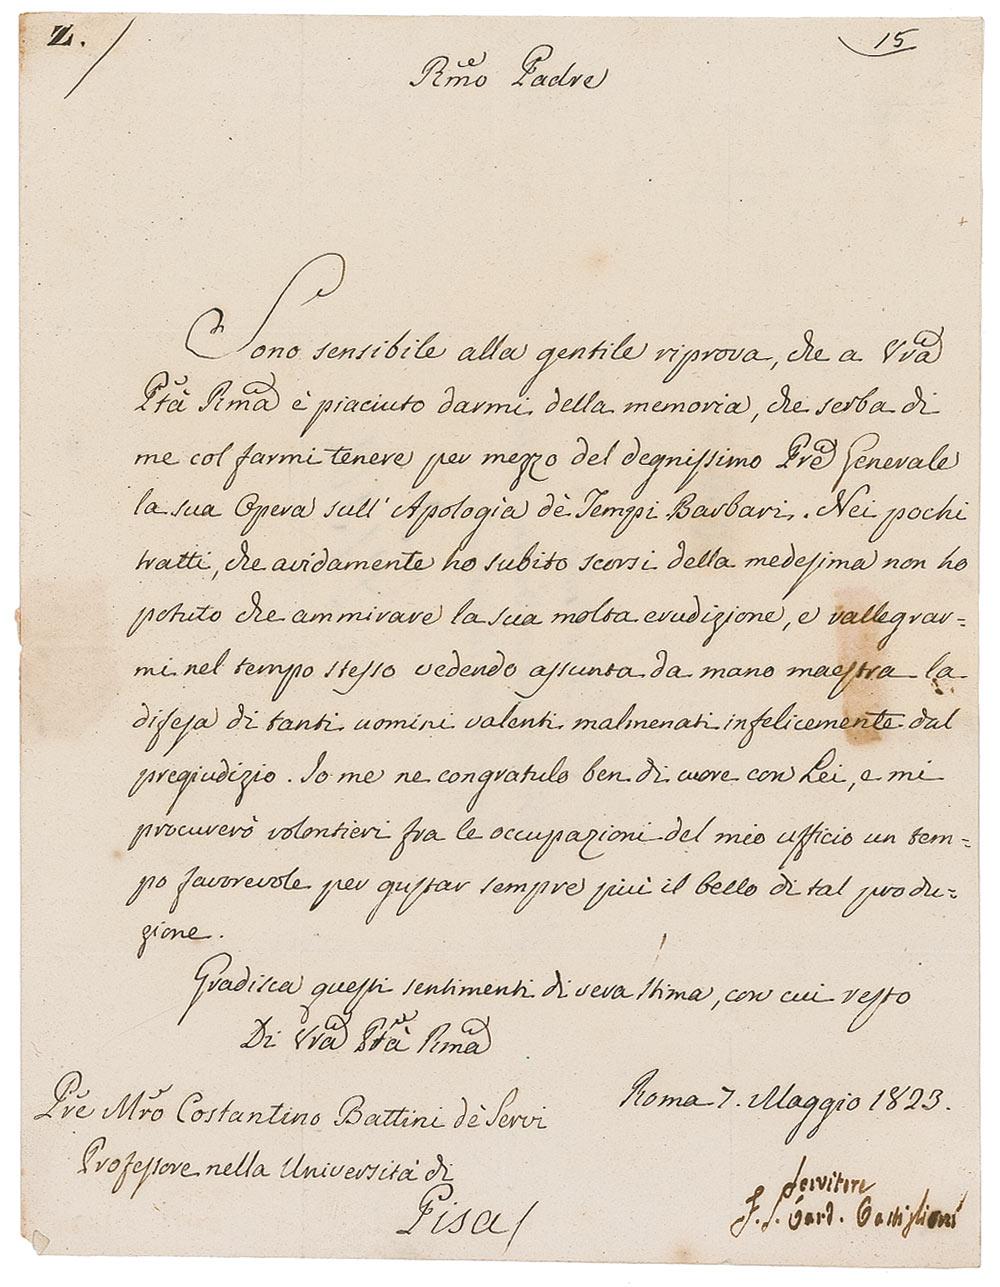 Z. /
15
Rmo Padre
Sono sensibile alla gentile riprova, che a Vra
Ptà Rma è piaciuto darmi della memoria, che serba di
me col farmi tenere per mezzo del degnissimo Pre Generale
la sua Opera sull'Apologia de' Tempi Barbari. Nei pochi
tratti, che avidamente ho subito scorsi della medesima non ho
potuto che ammirare la sua molta erudizione, e rallegrar=
mi nel tempo stesso vedendo assunta da mano maestra la
difesa di tanti uomini valenti malmenati infelicemente dal
pregiudizio. Io me ne congratulo ben di cuore con Lei, e mi
procurerò volontieri fra le occupazioni del mio ufficio un tem=
po favorevole per gustar sempre più il bello di tal produ=
zione.
Gradisca questi sentimenti di vera stima, con cui resto
Di Vra Ptà Rma
Roma 7. Maggio 1823.
Pre Mro Costantino Battini de' Servi
Professore nella Università di
Pisa /
Servitore
F. S. Card. Castiglioni